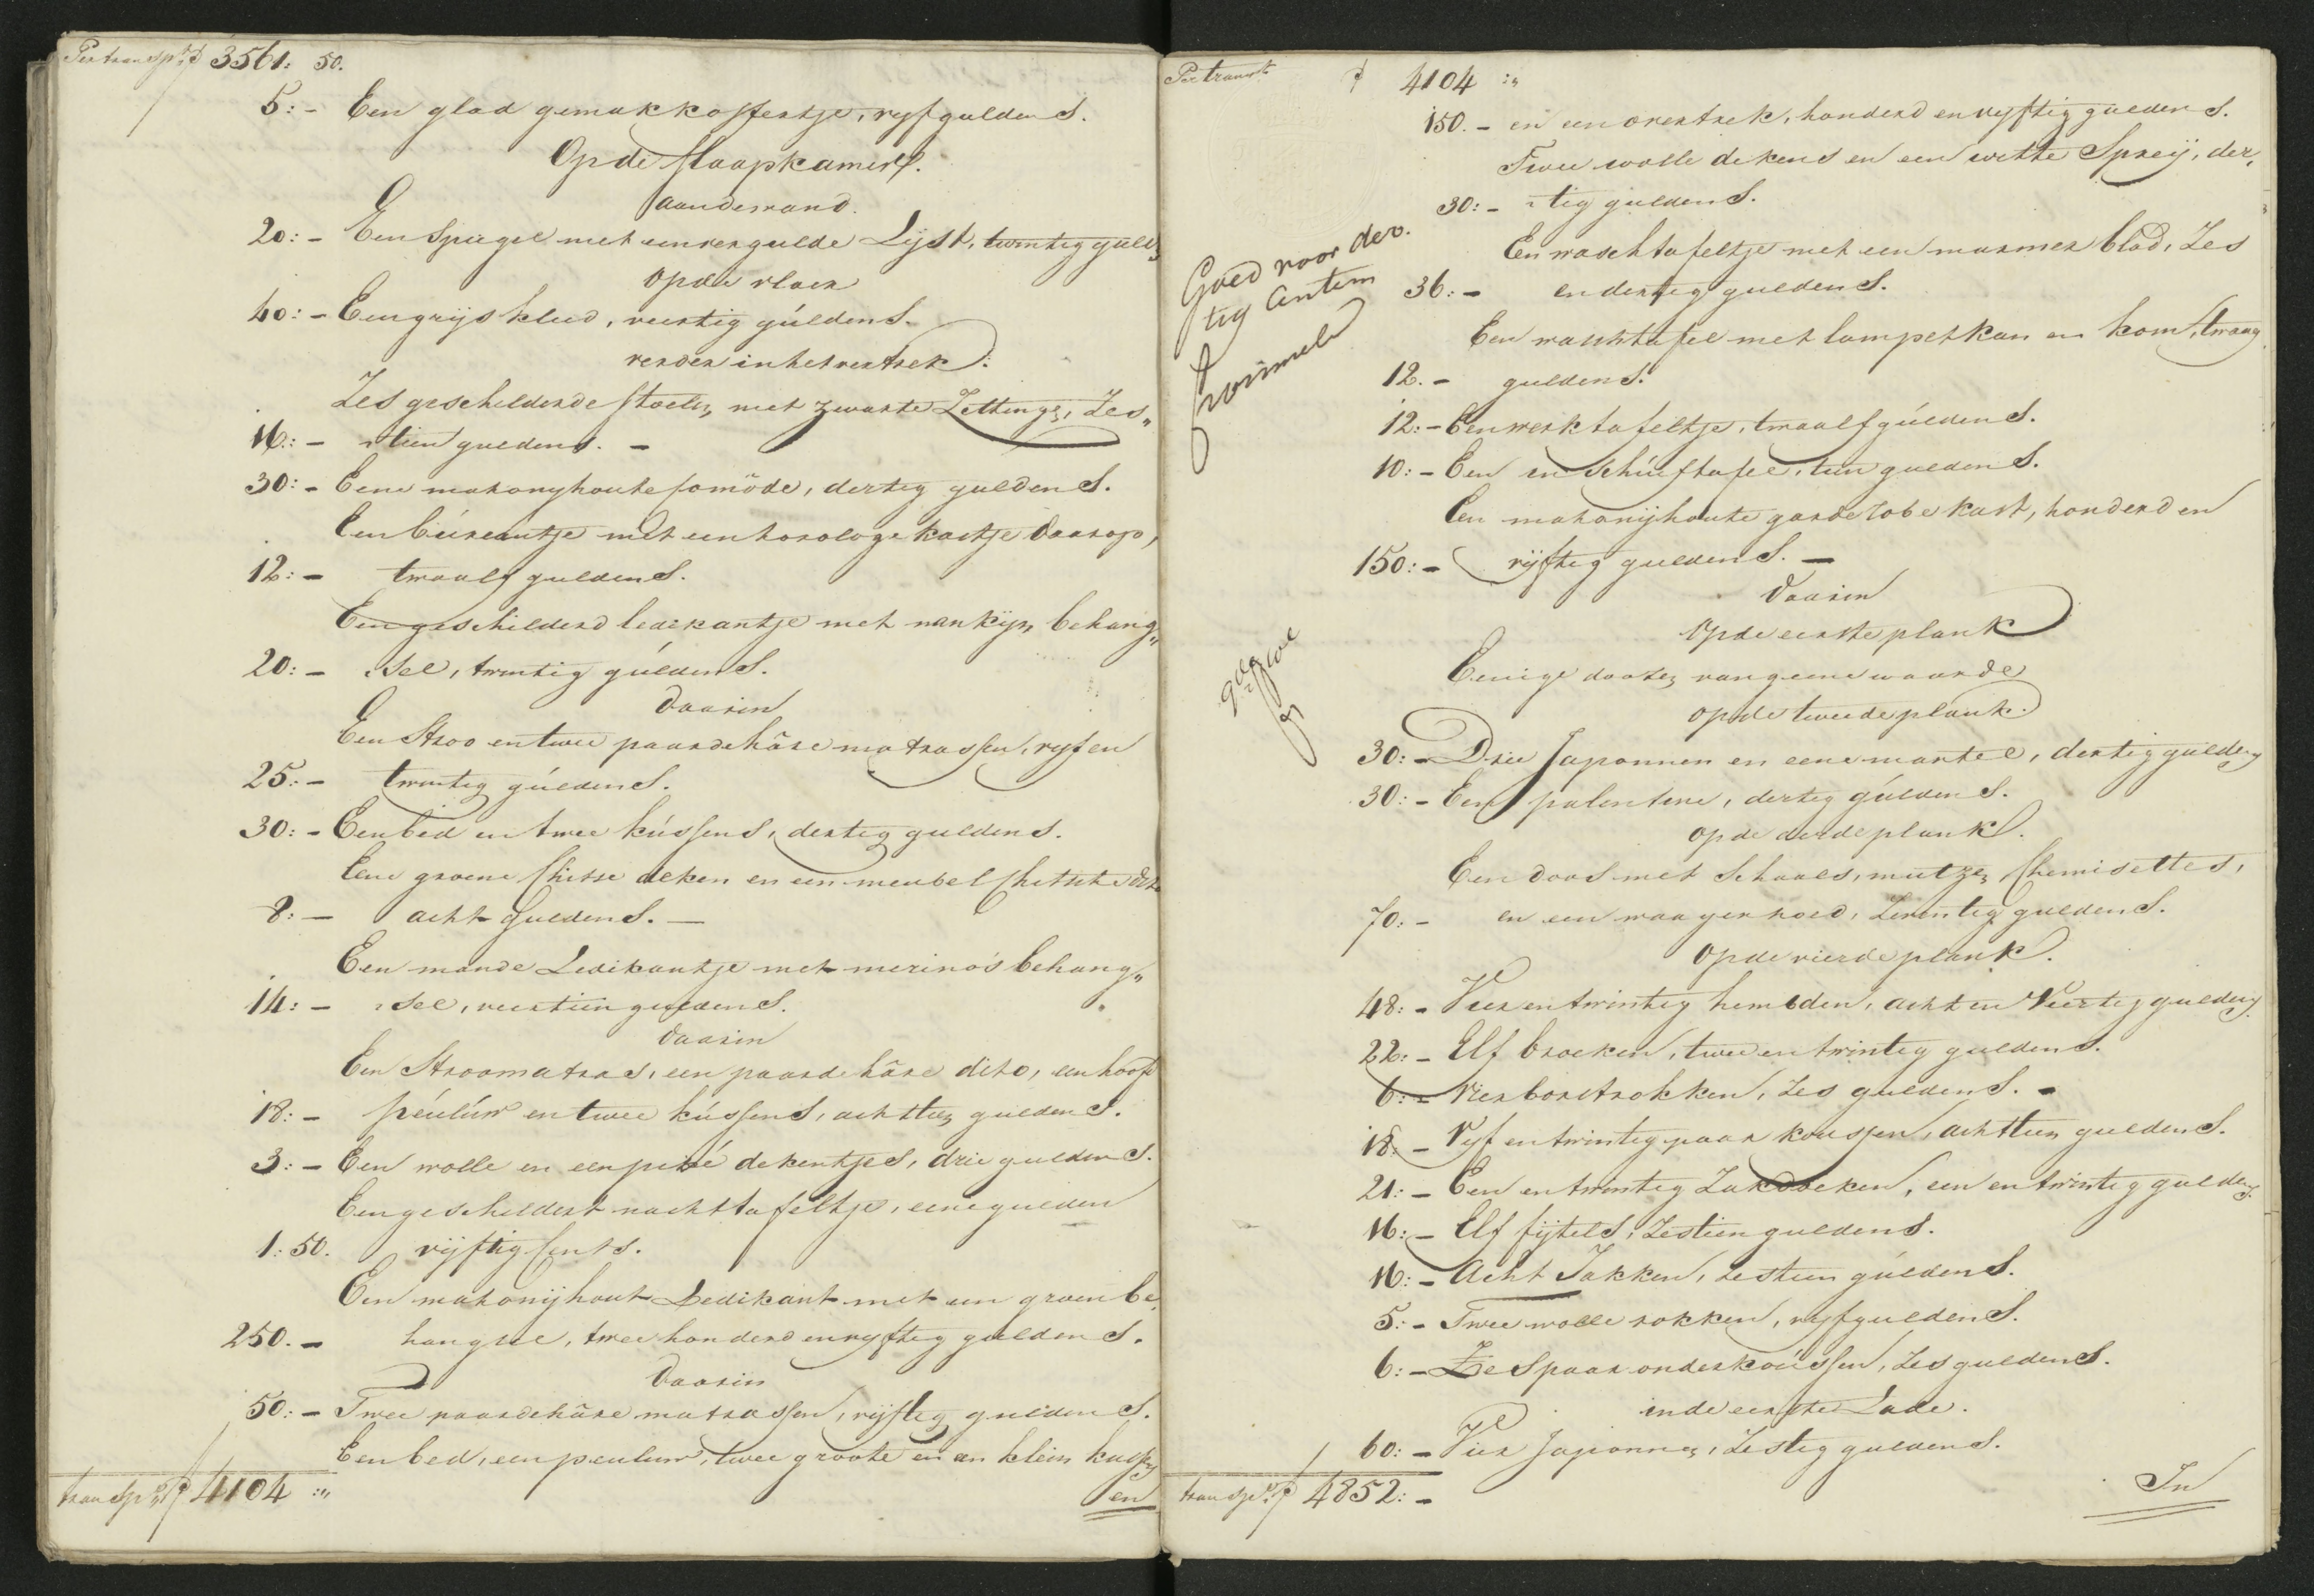 Per transpt f 3561: 50.
5:- Een glad gemakkoffertje, vyf guldens.
Op de Slaapkamer.
aan de wand.
20:- Een Spiegel met een vergulde Lijst, twintig guld:
op de vloer
40:- Een grijs kleed, veertig guldens.
verder in het vertrek.
Zes geschilderde stoelen met zwarte Zettings, Zes„
16:- „tien guldens. -
30:- Eene mahonyhoute Comode, dertig guldens.
Een bureautje met een horologe kastje daarop,
12:- twaalf guldens.
Een geschilderd ledekantje met nankijn behang„
20:- „sel, twintig guldens.
Daarin
Een Stroo en twee paardehare matrassen, vyf en
25:- twintig guldens.
30:- Een bed en twee kussens, dertig guldens.
Eene groene Chitse deken en een meubel Chitse dito
8:- acht Guldens. -
Een mande Ledikantje met merinos behang„
14:- „sel, veertien guldens.
Daarin
Een Stroomatras, een paardehare dito, een hoofd
18:- peuluw en twee kussens, achttien guldens.
3:- Een wolle en een piqué dekentjes, drie guldens.
Een geschildert nachttafeltje, eene gulden
1:50. vijftig Cents.
Een mahonijhout Ledikant met een groen be„
250.- hangsel, twee honderd en vyftig guldens.
Daarin
50:- Twee paardehare matrassen, vijftig guldens.
Een bed, een peuluw, twee groote en een klein kussen
transpt f 4104 :„ en
Per transpt f 4104 :„
150.- en een overtrek, honderd en vyftig guldens.
Twee wolle dekens en een witte Spreij, der„
30:- „tig guldens.
Een waschtafeltje met een marmer blad, Zes
36:- en dertig guldens.
Een waschtafel met lampetkan en kom, twaalf
12.- guldens.
12:- Een werktafeltje, twaalf guldens.
10:- Een inschuiftafel, tien guldens.
Een mahonijhoute garderobe kast, honderd en
150:- vijftig guldens. -
Daarin
Op de eerste plank
Eenige doozen van geene waarde
op de tweede plank.
30:- Drie Japonnen en eene mantel, dertig guldens
30:- Een palentine, dertig guldens.
op de derde plank.
Een doos met Schaals, mutzen, Chemisettes,
70:- en een waayerhoed, Zeventig guldens.
Op de vierde plank.
48:- Vier en twintig hembden, acht en Veertig guldens.
22:- Elf broeken, twee en twintig guldens.
6:- Vier borstrokken, Zes guldens. -
18:- Vyf en twintig paar koussen, achttien guldens.
21:- Een en twintig Zakdoeken, een en twintig guldens.
16:- Elf fijtels, Zestien guldens.
16:- Acht Jakken, Zestien guldens.
5:- Twee wolle rokken, vyf guldens.
6:- Zes paar onderkoussen, Zes guldens.
in de eerste Lade.
60:- Vier Japonnen, Zestig guldens.
transpt f 4852:- In
Goed voor der.
tig Centim